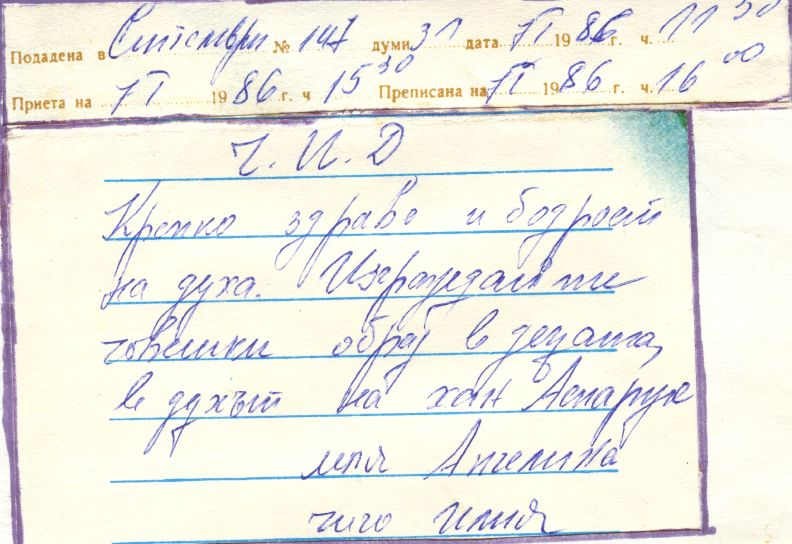 Подадена в Септември № 147 думи 31 дата 7 I 1986 г. ч. 11 30
Приета на 7 I 1986 г. ч 15 30 Преписана на 7 I 1986 г. ч. 16 00
Ч. И. Д
Крепко здраве и бодрост
на духа. Изграждайте
човешки образ в децата,
в духът на хан Аспарух
леля Ангелина
чичо Илия